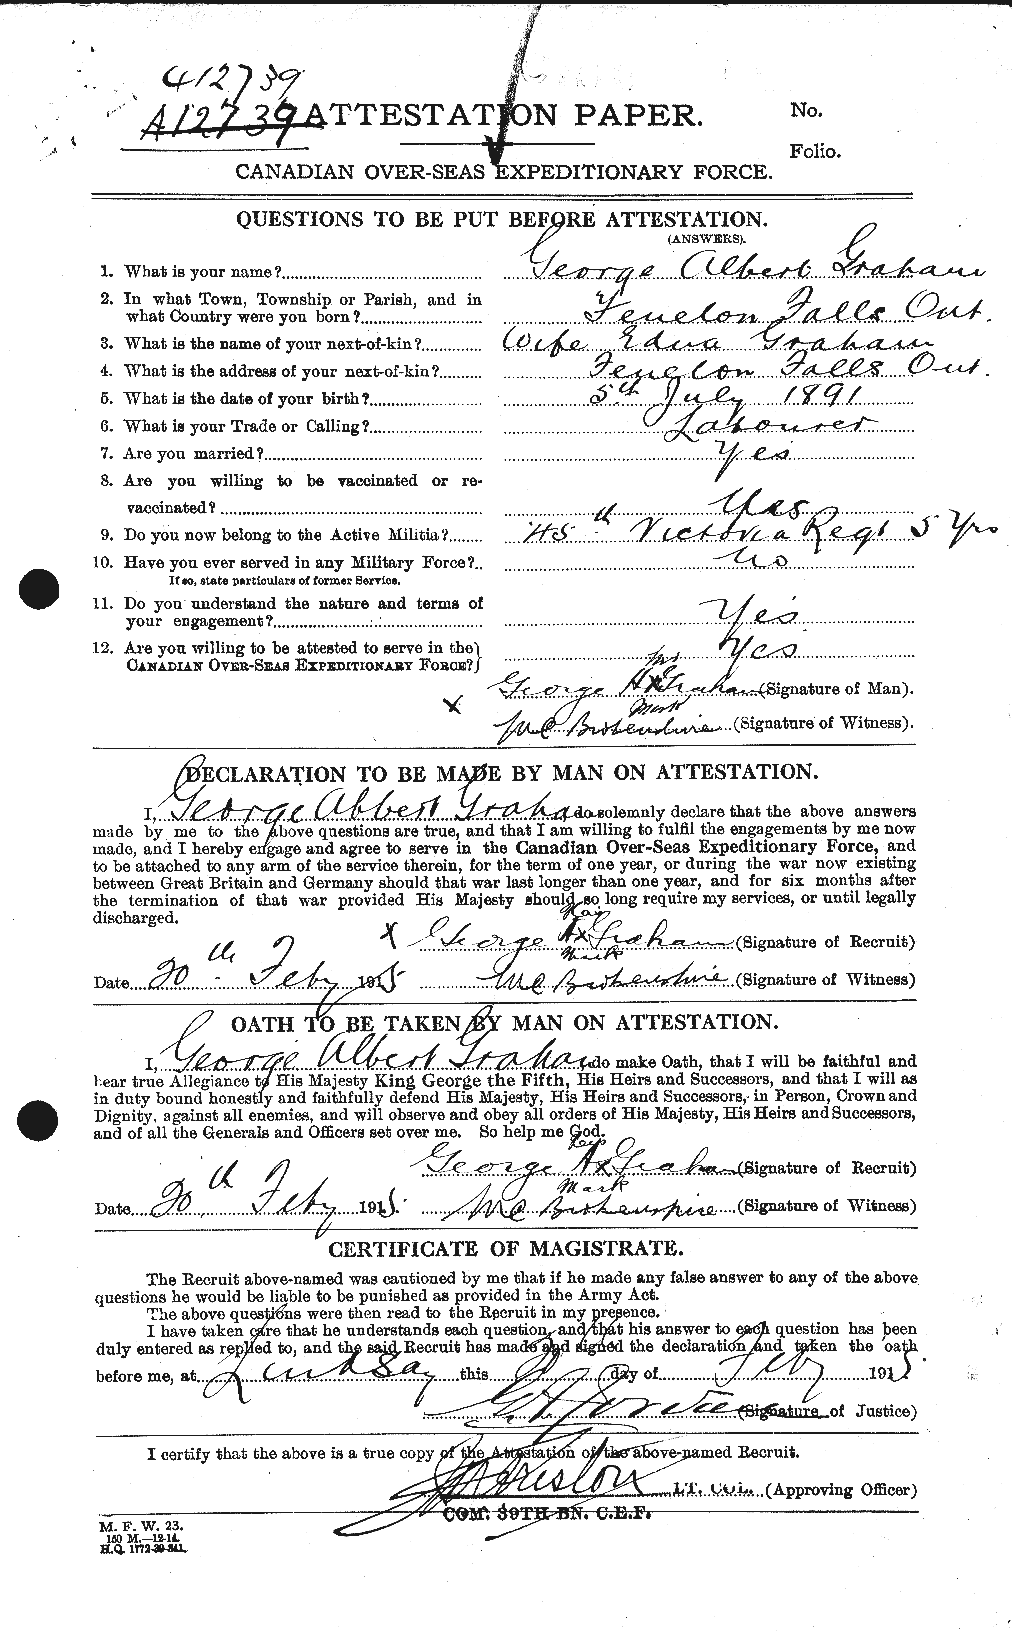 412739
A12739 ATTESTATION PAPER.
No.
Folio.
CANADIAN OVER-SEAS EXPEDITIONARY FORCE.
QUESTIONS TO BE PUT BEFORE ATTESTATION.
(ANSWERS).
1. What is your name? George Albert Graham
2. In what Town, Township or Parish, and in
what Country were you born? Fenelon Falls Ont.
3. What is the name of your next-of-kin? Wife Edna Graham
4. What is the address of your next-of-kin? Fenelon Falls Ont.
5. What is the date of your birth? 5th July 1891
6. What is your Trade or Calling? Labourer
7. Are you married? Yes
8. Are you willing to be vaccinated or re-
vaccinated? Yes
9. Do you now belong to the Active Militia? 45th Victoria Regt 5 Yrs
10. Have you ever served in any Military Force? No
If so, state particulars of former Service.
11. Do you understand the nature and terms of
your engagement? Yes
12. Are you willing to be attested to serve in the
CANADIAN OVER-SEAS EXPEDITIONARY FORCE? Yes
his
X George A x Graham (Signature of Man).
Mark
(Signature of Witness).
DECLARATION TO BE MADE BY MAN ON ATTESTATION.
I, George Albert Graham do solemnly declare that the above answers
made by me to the above questions are true, and that I am willing to fulfil the engagements by me now
made, and I hereby engage and agree to serve in the Canadian Over-Seas Expeditionary Force, and
to be attached to any arm of the service therein, for the term of one year, or during the war now existing
between Great Britain and Germany should that war last longer than one year, and for six months after
the termination of that war provided His Majesty should so long require my services, or until legally
discharged.
his
X George A x Graham (Signature of Recruit)
Mark
Date 20th Feby 1915 (Signature of Witness)
OATH TO BE TAKEN BY MAN ON ATTESTATION.
I, George Albert Graham do make Oath, that I will be faithful and
bear true Allegiance to His Majesty King George the Fifth, His Heirs and Successors, and that I will as
in duty bound honestly and faithfully defend His Majesty, His Heirs and Successors, in Person, Crown and
Dignity, against all enemies, and will observe and obey all orders of His Majesty, His Heirs and Successors,
and of all the Generals and Officers set over me. So help me God.
his
George A x Graham (Signature of Recruit)
Mark
Date 20th Feby 1915. (Signature of Witness)
CERTIFICATE OF MAGISTRATE.
The Recruit above-named was cautioned by me that if he made any false answer to any of the above
questions he would be liable to be punished as provided in the Army Act.
The above questions were then read to the Recruit in my presence.
I have taken care that he understands each question, and that his answer to each question has been
duly entered as replied to, and the said Recruit has made and signed the declaration and taken the oath
before me, at Lindsay this day of Feby 1915
(Signature of Justice)
I certify that the above is a true copy of the Attestation of the above-named Recruit.
LT. COL. (Approving Officer)
COM. 39TH BN. C.E.F.
M. F. W. 23.
150 M.—12-14.
H.Q. 1772-39-841.